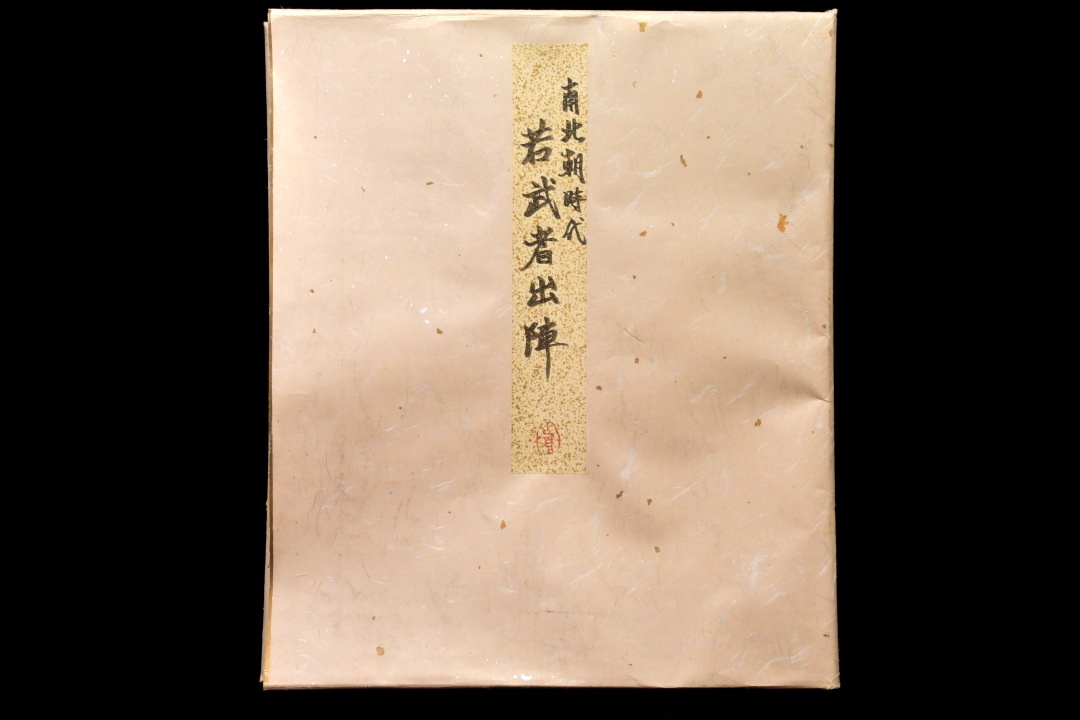 南北朝時代
若武者出陣